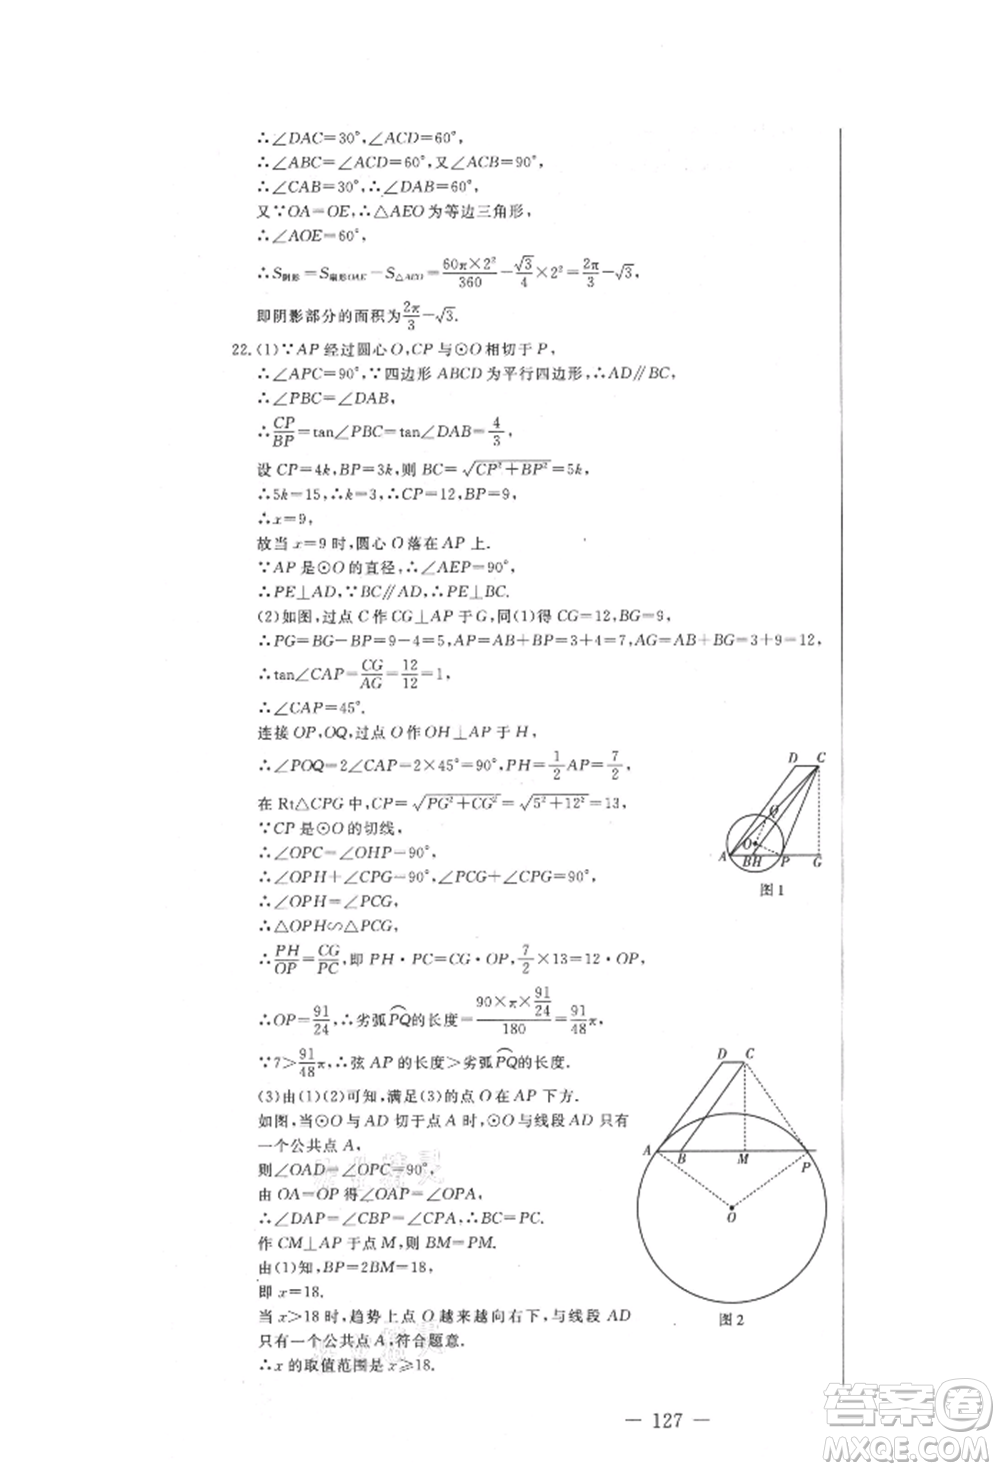 ∴∠DAC=30°,∠ACD=60°,
∴∠ABC=∠ACD=60°,又∠ACB=90°,
∴∠CAB=30°,∴∠DAB=60°,
又∵OA=OE,∴△AEO为等边三角形,
∴∠AOE=60°,
∴S阴影=S扇形OAE−S△AEO=60π×2²/360−√3/4×2²=2π/3−√3,
即阴影部分的面积为2π/3−√3.
22.(1)∵AP经过圆心O,CP与⊙O相切于P,
∴∠APC=90°,∵四边形ABCD为平行四边形,∴AD∥BC,
∴∠PBC=∠DAB,
∴CP/BP=tan∠PBC=tan∠DAB=4/3,
设CP=4k,BP=3k,则BC=√(CP²+BP²)=5k,
∴5k=15,∴k=3,∴CP=12,BP=9,
∴x=9,
故当x=9时,圆心O落在AP上.
∵AP是⊙O的直径,∴∠AEP=90°,
∴PE⊥AD,∵BC∥AD,∴PE⊥BC.
(2)如图,过点C作CG⊥AP于G,同(1)得CG=12,BG=9,
∴PG=BG−BP=9−4=5,AP=AB+BP=3+4=7,AG=AB+BG=3+9=12,
∴tan∠CAP=CG/AG=12/12=1,
∴∠CAP=45°.
连接OP,OQ,过点O作OH⊥AP于H,
∴∠POQ=2∠CAP=2×45°=90°,PH=1/2AP=7/2,
在Rt△CPG中,CP=√(PG²+CG²)=√(5²+12²)=13,
∵CP是⊙O的切线,
∴∠OPC=∠OHP=90°,
∴∠OPH+∠CPG=90°,∠PCG+∠CPG=90°,
∴∠OPH=∠PCG,
∴△OPH∽△PCG,
∴PH/OP=CG/PC,即PH·PC=CG·OP,7/2×13=12·OP,
∴OP=91/24,∴劣弧PQ的长度=(90×π×91/24)/180=91/48π,
∵7>91/48π,∴弦AP的长度>劣弧PQ的长度.
(3)由(1)(2)可知,满足(3)的点O在AP下方.
如图,当⊙O与AD切于点A时,⊙O与线段AD只有
一个公共点A,
则∠OAD=∠OPC=90°,
由OA=OP得∠OAP=∠OPA,
∴∠DAP=∠CBP=∠CPA,∴BC=PC.
作CM⊥AP于点M,则BM=PM.
由(1)知,BP=2BM=18,
即x=18.
当x>18时,趋势上点O越来越向右下,与线段AD
只有一个公共点A,符合题意.
∴x的取值范围是x≥18.
D C
Q
O
A BH P G
图1
D C
A B M P
O
图2
— 127 —
答案圈
MXQE.COM